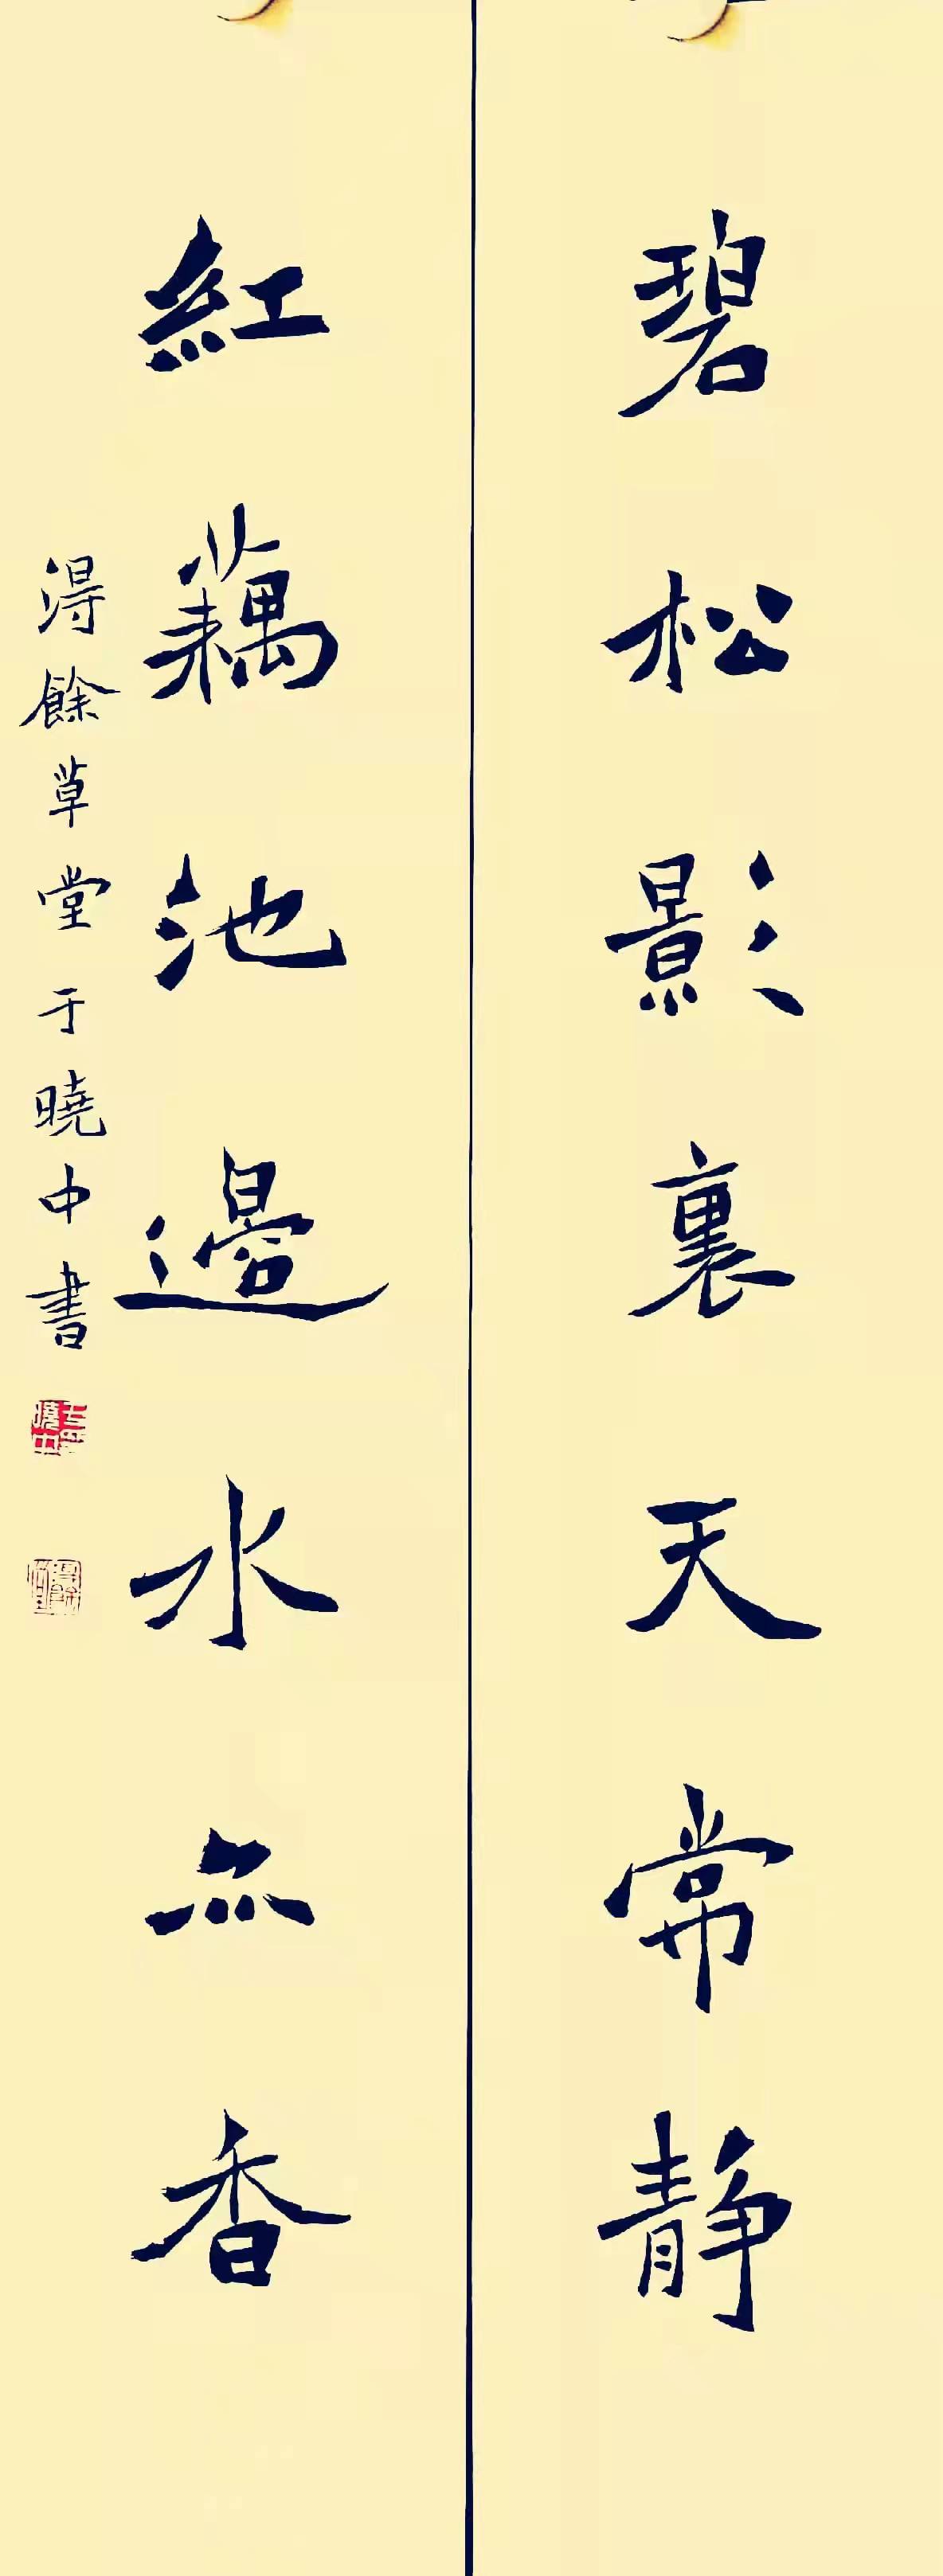 碧松影裏天常靜
紅藕池邊水亦香
淂餘草堂于曉中書